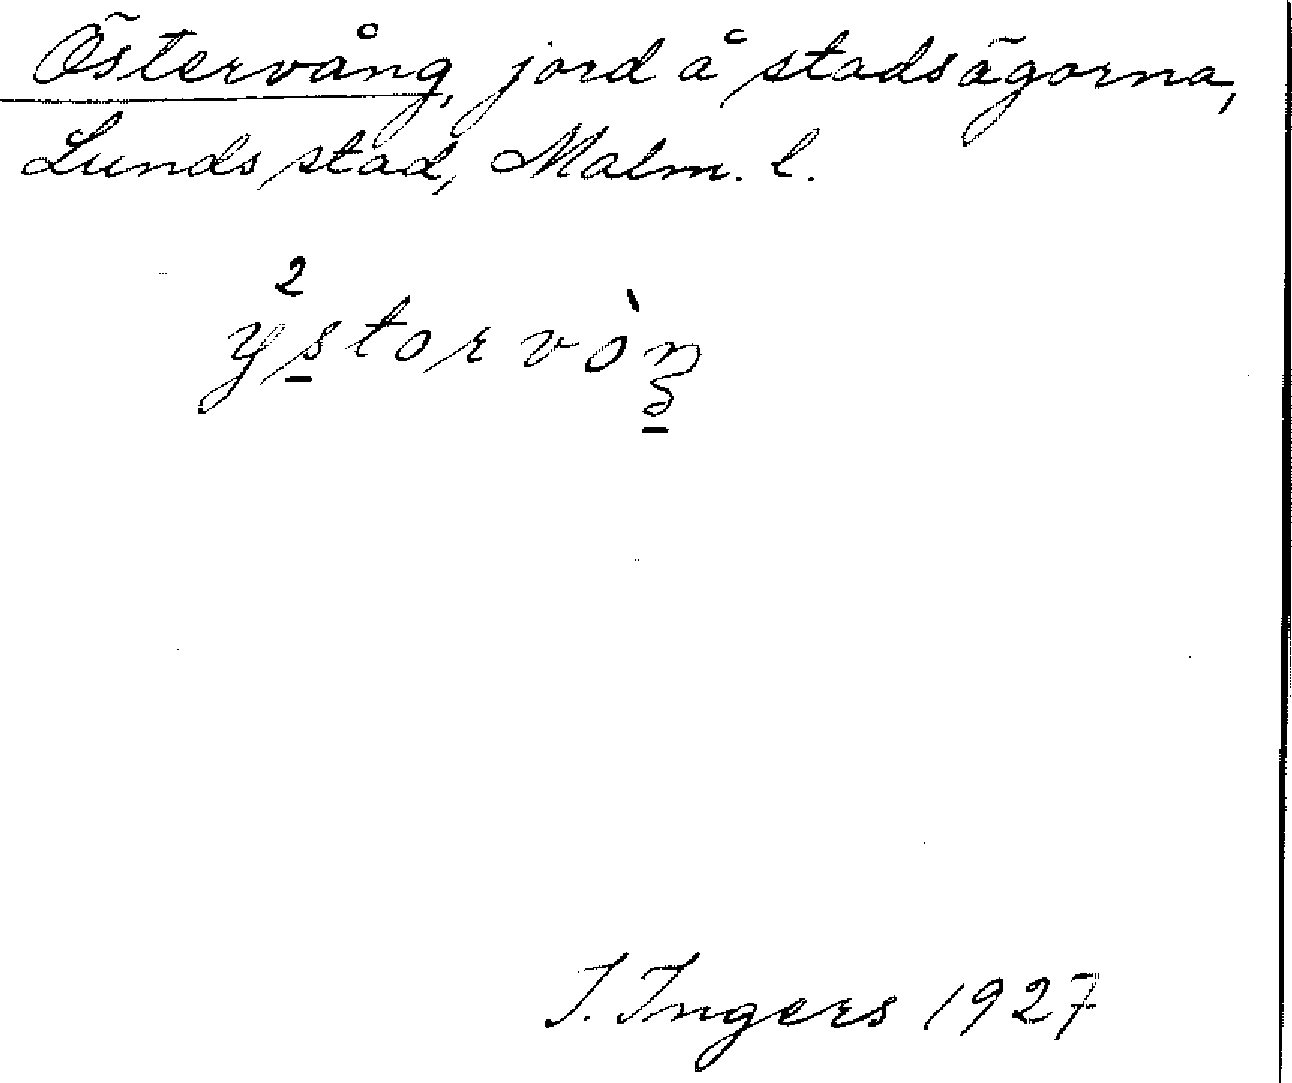 Östervång, jord å stadsägorna,
Lunds stad, Malm. l.
I. Ingers 1927